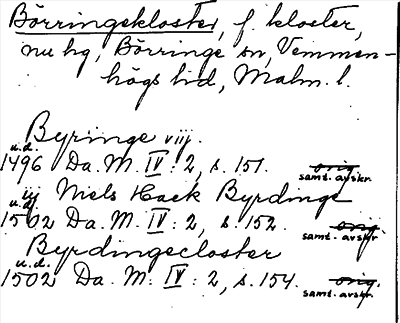 Börringekloster, f. kloster,
nu hg, Börringe sn, Vemmen-
högs hd, Malm. l.
Byringe viij.
u.d.
1496 Da. M. IV: 2, s. 151. orig.
samt. avskr.
iij Niels Hack Byrdinge
u.d.
1502 Da. M. IV: 2, s. 152. orig.
samt. avskr.
Byrdingecloster
u.d.
1502 Da. M. IV: 2, s. 154. orig.
samt. avskr.